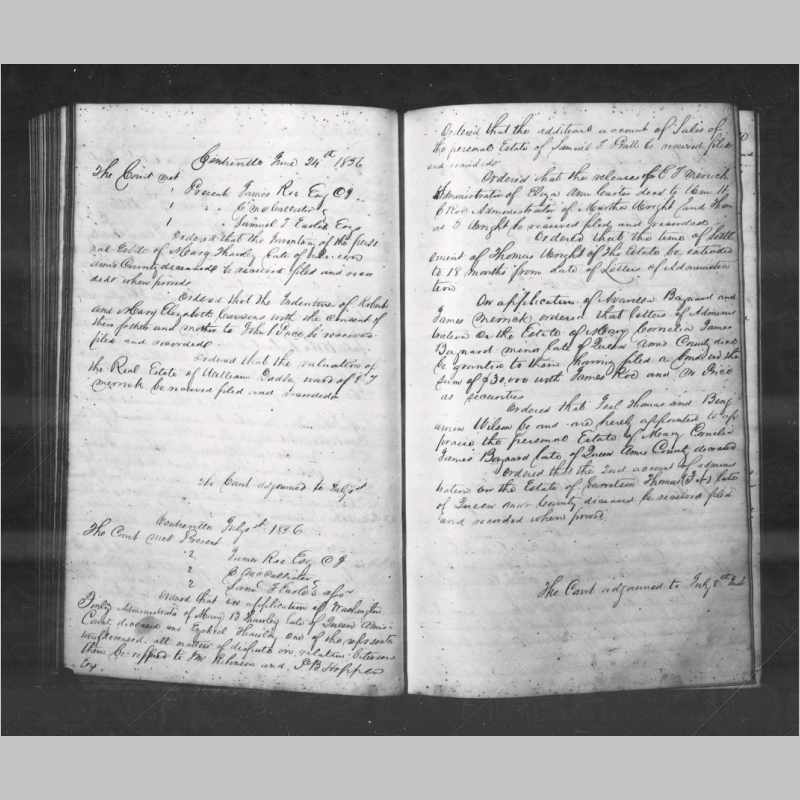 Centreville June 24th 1836
The Court met
1 Present James Roe Esq CJ
1 " "
1 " Samuel T Earle Esq
Ordered that the Inventory of the perso
nal Estate of Mary late of Queen
Anns County deceased be received filed and recor
ded when proved
Ordered that the Indenture of Robert
and Mary Elizabeth with the consent of
their father and mother to John Price be received
filed and recorded
Ordered that the valuation of
the Real Estate of William ward of E T
Merrick be received filed and recorded
The Court adjourned to July 1st
Centreville July 1st 1836
The Court met Present
2 James Roe Esq CJ
2
2 Saml T Earle Esqr
Ordered that on application of Washington
Administrator of Mary B late of Queen Anns
County deceased and Ezekiel one of the
all matters of dispute in relation between
them be reffered to Wm and B Hopper
Esq
Ordered that the additional account of Sales of
the personal Estate of Samuel T be received filed
and recorded
Ordered that the release of E T Merrick
Administrator of Eliza Ann decd by Wm H
C Roe Administrator of Martha Wright and Thom
as Wright be received filed and recorded
Ordered that the time of Settl
ement of Thomas Wright of Tho Estate be extended
to 18 months from date of Letters of Administra
tion
On application of Baynard and
James Merrick ordered that letters of Adminis
tration on the Estate of Mary Cornelia James
Baynard minor late of Queen Anns County decd
be granted to them having filed a bond in the
sum of $30,000 with James Roe and M Price
as securities
Ordered that Thomas and Benj
amin Wilson be and are hereby appointed to ap
praise the personal Estate of Mary Cornelia
James Baynard late of Queen Anns County deceased
Ordered that the 2nd account of adminis
tration on the Estate of Thomas late
of Queen Anns County deceased be received filed
and recorded when proved
The Court adjourned to July 8th